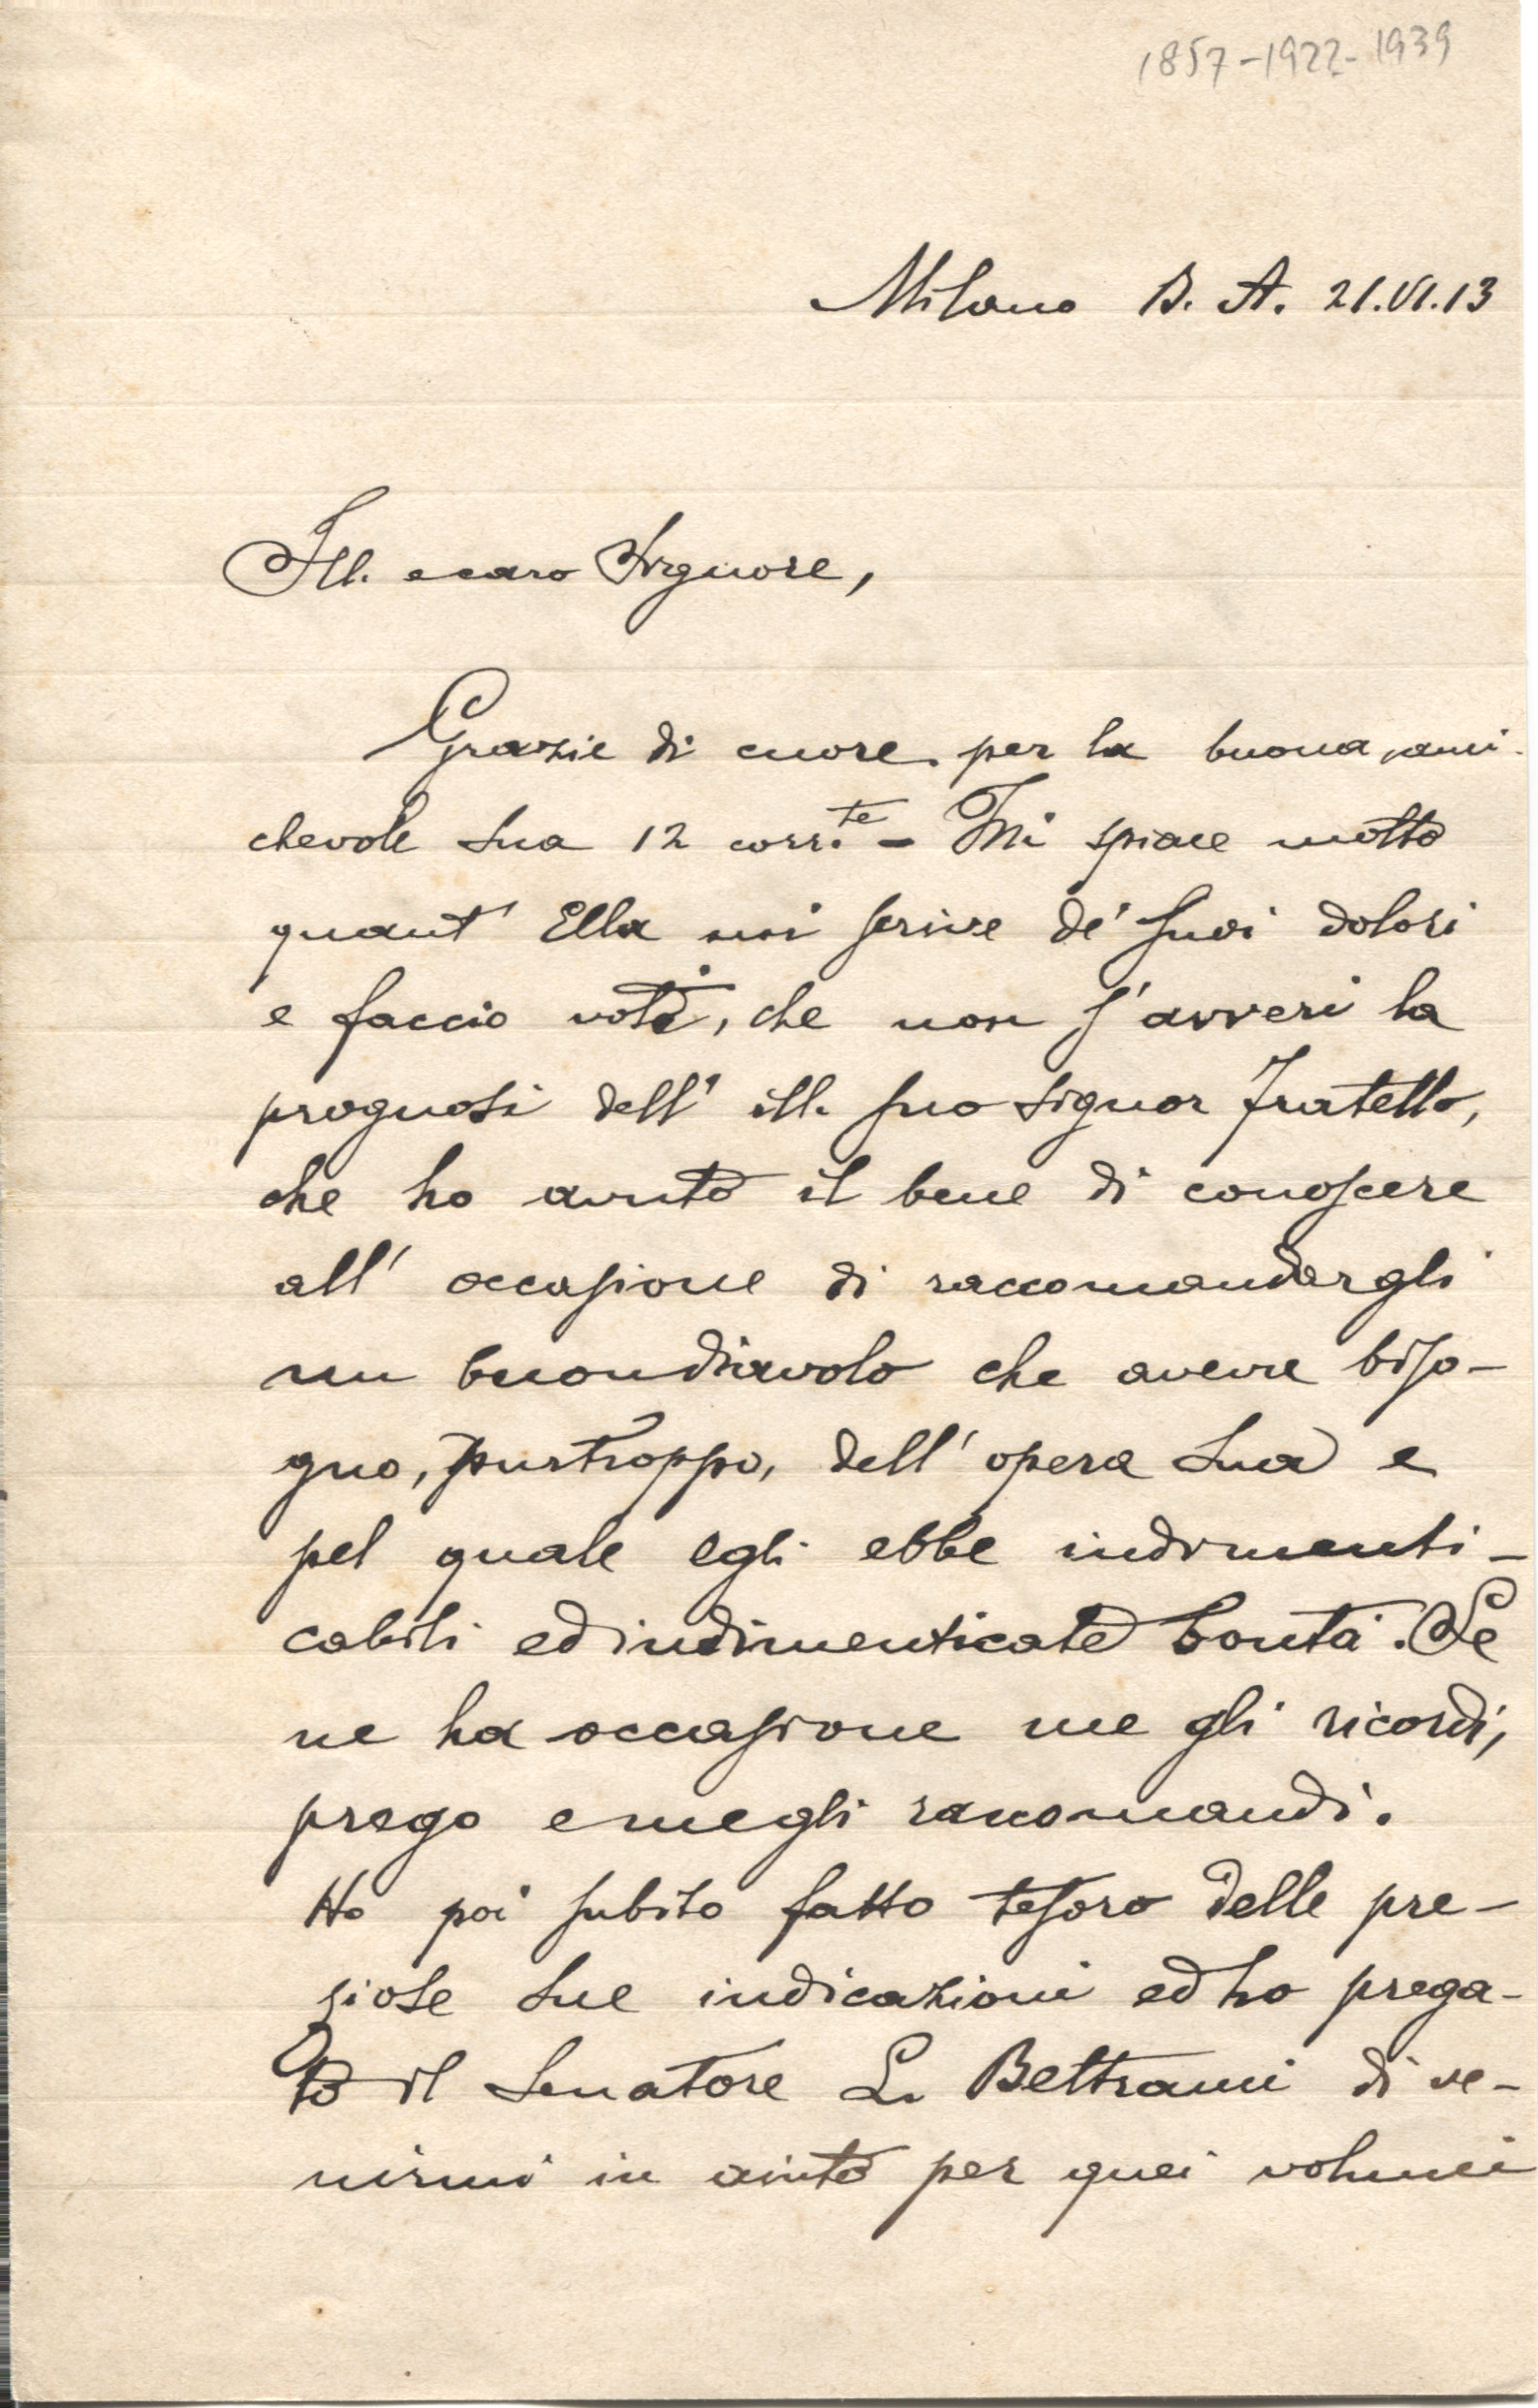 1857-1922-1939
Milano B. A. 21.VI.13
Ill. e caro Signore,
Grazie di cuore per la buona, ami-
chevole Sua 12 corr.te - Mi spiace molto
quant' Ella mi scrive de' suoi dolori
e faccio voti, che non s'avveri la
prognosi dell' ill. suo signor fratello,
che ho avuto il bene di conoscere
all' occasione di raccomandargli
un buondiavolo che aveva biso-
gno, purtroppo, dell' opera Sua e
pel quale egli ebbe indimenti-
cabili ed indimenticate bontà. Se
ne ha occasione me gli ricordi,
prego e megli raccomandi.
Ho poi subito fatto tesoro delle pre-
ziose Sue indicazioni ed ho prega-
to il Senatore L. Beltrami di ve-
nirmi in aiuto per quei volumi